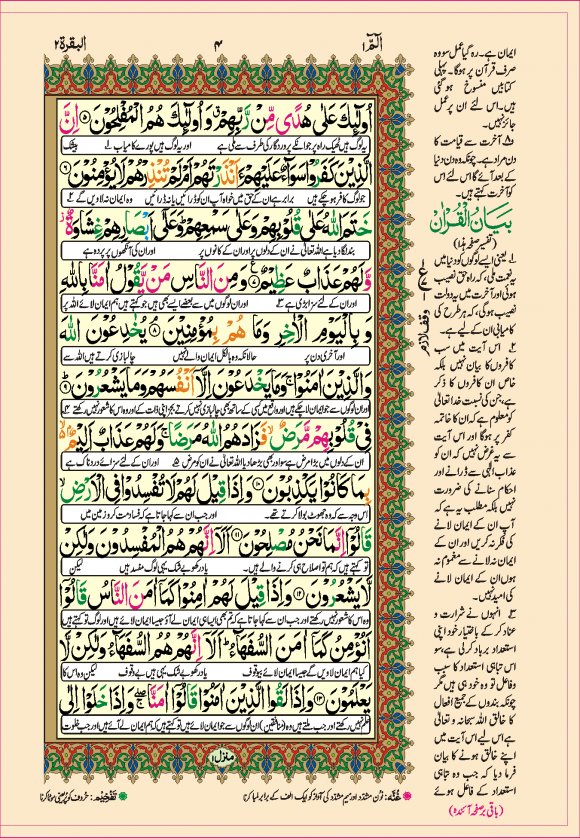 الٓمّٓ ۱
۴
البقرة ۲
اُولٰٓئِكَ عَلٰى هُدًى مِّنْ رَّبِّهِمْ وَاُولٰٓئِكَ هُمُ الْمُفْلِحُوْنَ ۵ اِنَّ
یہ لوگ ہیں ٹھیک راہ پر جو انکے پروردگار کی طرف سے ملی ہے اور یہ لوگ ہیں پورے کامیاب بیشک
الَّذِيْنَ كَفَرُوْا سَوَآءٌ عَلَيْهِمْ ءَاَنْذَرْتَهُمْ اَمْ لَمْ تُنْذِرْهُمْ لَا يُؤْمِنُوْنَ ۶
جو لوگ کافر ہو چکے ہیں برابر ہے ان کے حق میں خواہ آپ ان کو ڈرائیں یا نہ ڈرائیں وہ ایمان نہ لاویں گے
خَتَمَ اللّٰهُ عَلٰى قُلُوْبِهِمْ وَعَلٰى سَمْعِهِمْ وَعَلٰٓى اَبْصَارِهِمْ غِشَاوَةٌ
بند لگا دیا ہے اللہ تعالیٰ نے ان کے دلوں پر اور ان کے کانوں پر اور ان کی آنکھوں پر پردہ ہے
وَّلَهُمْ عَذَابٌ عَظِيْمٌ ۷ وَمِنَ النَّاسِ مَنْ يَّقُوْلُ اٰمَنَّا بِاللّٰهِ
اور ان کے لئے سزا بڑی ہے اور ان لوگوں میں سے بعضے ایسے بھی ہیں جو کہتے ہیں ہم ایمان لائے اللہ پر
وَبِالْيَوْمِ الْاٰخِرِ وَمَا هُمْ بِمُؤْمِنِيْنَ ۸ يُخٰدِعُوْنَ اللّٰهَ
اور آخری دن پر حالانکہ وہ بالکل ایمان والے نہیں چالبازی کرتے ہیں اللہ سے
وَالَّذِيْنَ اٰمَنُوْا وَمَا يَخْدَعُوْنَ اِلَّآ اَنْفُسَهُمْ وَمَا يَشْعُرُوْنَ ۹
اور ان لوگوں سے جو ایمان لا چکے ہیں اور واقع میں کسی کے ساتھ بھی چالبازی نہیں کرتے بجز اپنی ذات کے اور وہ اس کا شعور نہیں رکھتے
فِيْ قُلُوْبِهِمْ مَّرَضٌ فَزَادَهُمُ اللّٰهُ مَرَضًا وَلَهُمْ عَذَابٌ اَلِيْمٌ
ان کے دلوں میں بڑا مرض ہے سو اور بھی بڑھا دیا اللہ تعالیٰ نے ان کو مرض اور ان کے لئے سزائے دردناک ہے
بِمَا كَانُوْا يَكْذِبُوْنَ ۱۰ وَاِذَا قِيْلَ لَهُمْ لَا تُفْسِدُوْا فِى الْاَرْضِ
اس وجہ سے کہ وہ جھوٹ بولا کرتے تھے۔ اور جب ان سے کہا جاتا ہے کہ فساد مت کرو زمین میں
قَالُوْٓا اِنَّمَا نَحْنُ مُصْلِحُوْنَ ۱۱ اَلَآ اِنَّهُمْ هُمُ الْمُفْسِدُوْنَ وَلٰكِنْ
تو کہتے ہیں کہ ہم تو اصلاح ہی کرنے والے ہیں۔ یاد رکھو بے شک یہی لوگ مفسد ہیں لیکن
لَّا يَشْعُرُوْنَ ۱۲ وَاِذَا قِيْلَ لَهُمْ اٰمِنُوْا كَمَآ اٰمَنَ النَّاسُ قَالُوْٓا
وہ اس کا شعور نہیں رکھتے اور جب ان سے کہا جاتا ہے کہ تم بھی ایسا ہی ایمان لے آؤ جیسا ایمان لائے ہیں اور لوگ تو کہتے ہیں
اَنُؤْمِنُ كَمَآ اٰمَنَ السُّفَهَآءُ اَلَآ اِنَّهُمْ هُمُ السُّفَهَآءُ وَلٰكِنْ لَّا
کیا ہم ایمان لاویں گے جیسا ایمان لائے ہیں بیوقوف یاد رکھو بے شک یہی ہیں بیوقوف لیکن وہ اس کا
يَعْلَمُوْنَ ۱۳ وَاِذَا لَقُوا الَّذِيْنَ اٰمَنُوْا قَالُوْٓا اٰمَنَّا وَاِذَا خَلَوْا اِلٰى
علم نہیں رکھتے اور جب ملتے ہیں وہ (منافقین) ان لوگوں سے جو ایمان لائے ہیں تو کہتے ہیں کہ ہم ایمان لے آئے ہیں اور جب خلوت
منزل ۱
وقف لازم
ایمان ہے۔ رہ گیا عمل سو وہ
صرف قرآن پر ہوگا۔ پہلی
کتابیں منسوخ ہو گئی
ہیں۔ اس لئے ان پر عمل
جائز نہیں۔
۵ آخرت سے قیامت کا
دن مراد ہے۔ چونکہ وہ دن دنیا
کے بعد آئے گا اس لئے اس
کو آخرت کہتے ہیں۔
بَيَانُ الْقُرْاٰن
(تفسیر صفحہ ہٰذا)
۱ یعنی ایسے لوگوں کو دنیا میں
یہ نعمت ملی، کہ راہ حق نصیب
ہوئی اور آخرت میں یہ دولت
نصیب ہوگی، کہ ہر طرح کی
کامیابی ان کے لیے ہے۔
۲ اس آیت میں سب
کافروں کا بیان نہیں بلکہ
خاص ان کافروں کا ذکر
ہے، جن کی نسبت خدا تعالیٰ
کو معلوم ہے کہ ان کا خاتمہ
کفر پر ہوگا اور اس آیت
سے یہ غرض نہیں کہ ان کو
عذاب الٰہی سے ڈرانے اور
احکام سنانے کی ضرورت
نہیں بلکہ مطلب یہ ہے کہ
آپ ان کے ایمان لانے
کی فکر نہ کریں اور ان کے
ایمان نہ لانے سے مغموم نہ
ہوں ان کے ایمان لانے
کی امید نہیں۔
۳ انہوں نے شرارت و
عناد کر کے باختیار خود اپنی
استعداد برباد کر لی ہے، سو
اس تباہی استعداد کا سبب
و فاعل تو وہ خود ہی ہیں مگر
چونکہ بندوں کے جمیع افعال
کا خالق اللہ سبحانہ و تعالیٰ
ہے اس لیے اس آیت میں
اپنے خالق ہونے کا بیان
فرما دیا کہ جب وہ تباہی
استعداد کے فاعل ہوئے
(باقی بر صفحہ آئندہ)
غُنَّہ: نون مشدد اور میم مشدد کی آواز کو ایک الف کے برابر لمبا کرنا
تَفْخِيْم: حروف کو پُر یعنی موٹا کرنا